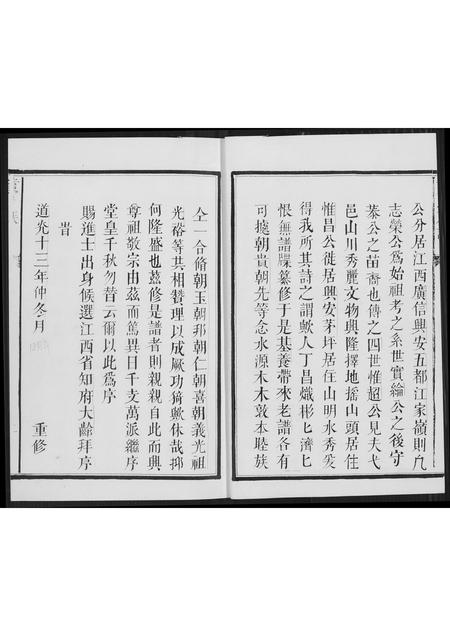 公分居江西廣信興安五都江家嶺則凢
志榮公爲始祖考之系世實綸公之後守
葢公之苗裔也傳之四世惟超公見夫弋
邑山川秀麗文物興隆擇地搖山頭居住
惟昌公徙居興安茅坪居住山明水秀爰
得我所其詩之謂歟人丁昌熾彬匕濟匕
恨無譜牒纂修于是基養帶來老譜各有
可據朝貴朝先等念水源木本敦本睦族
仝一合脩朝玉朝邦朝仁朝喜朝義光祖
光裕等共相贊理以成厥功猗歟休哉抑
何隆盛也茲修是譜者則親親自此而興
尊祖敬宗由茲而篤異日千支萬派繼序
堂皇千秋勿替云爾以此爲序
賜進士出身候選江西省知府大齡拜序
旹
道光十三年仲冬月 重修